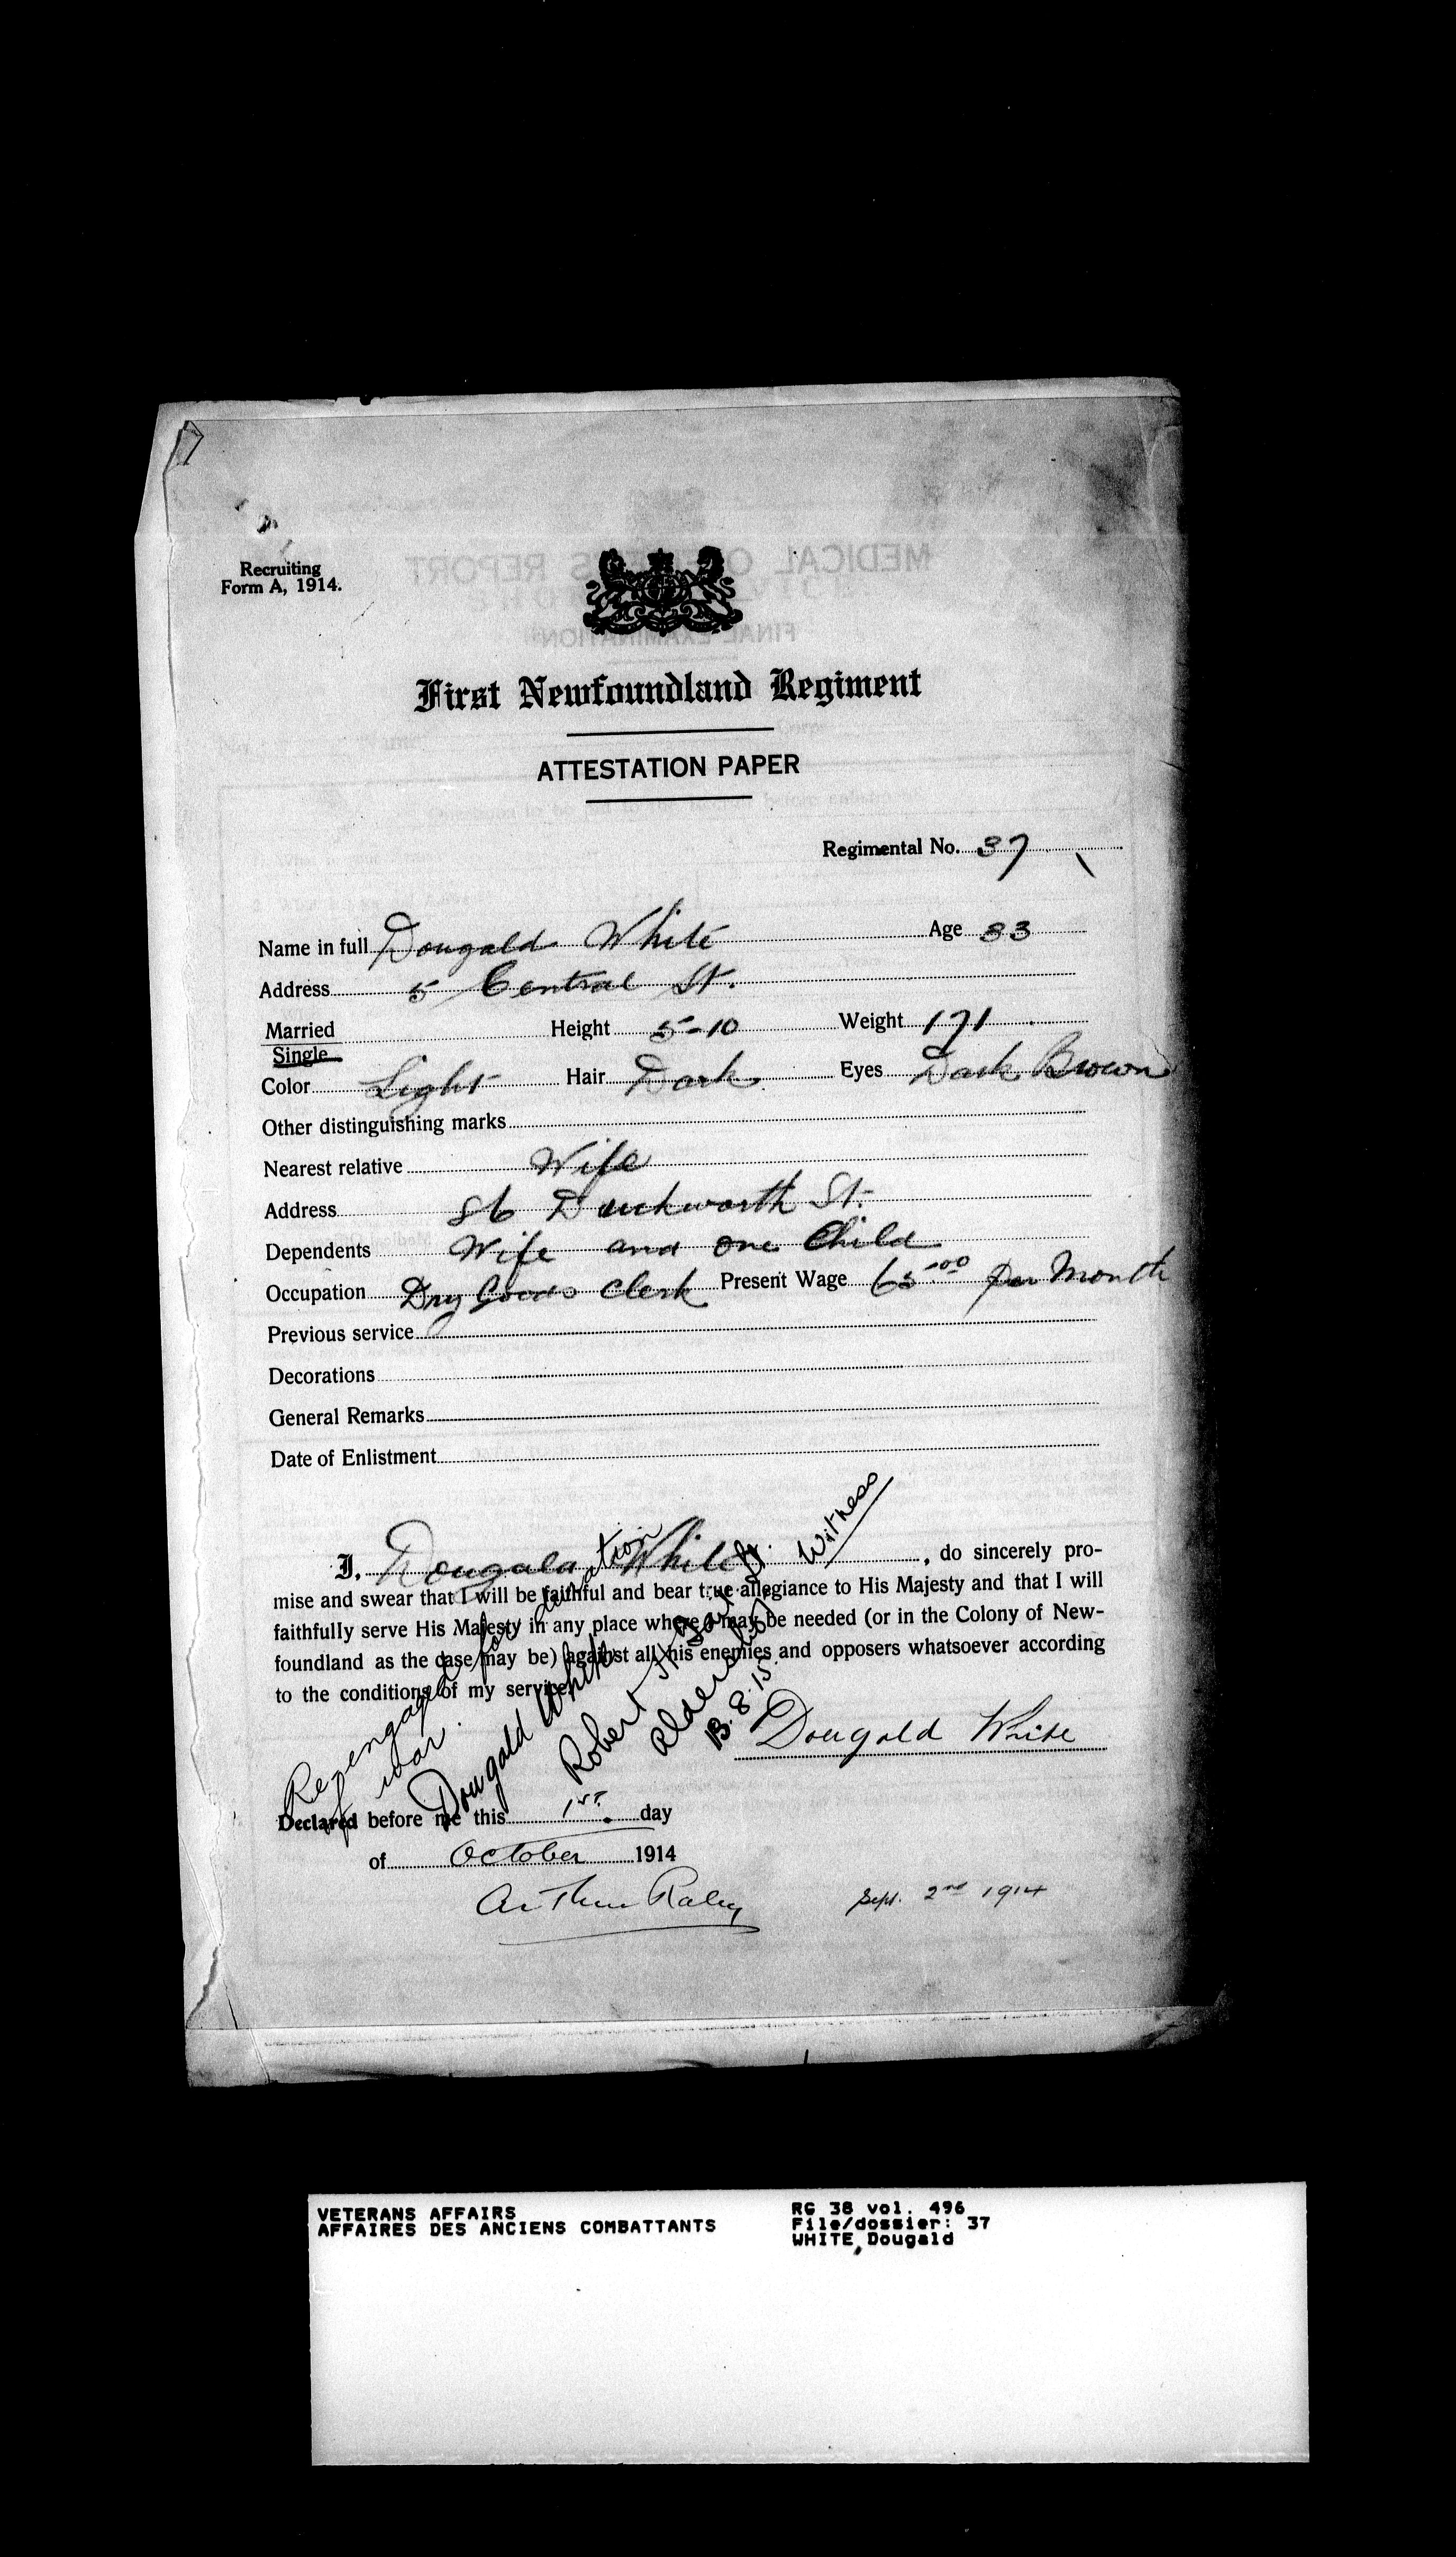 Recruiting
Form A, 1914.
First Newfoundland Regiment
ATTESTATION PAPER
Regimental No. 37
Name in full Dougald White Age 33
Address 5 Central St.
Married Height 5-10 Weight 171
Single
Color Light Hair Dark Eyes Dark Brown
Other distinguishing marks
Nearest relative Wife
Address 86 Duckworth St.
Dependents Wife and one Child
Occupation Dry Goods Clerk Present Wage 65.00 per Month
Previous service
Decorations
General Remarks
Date of Enlistment
I, Dougald White, do sincerely pro-
mise and swear that I will be faithful and bear true allegiance to His Majesty and that I will
faithfully serve His Majesty in any place where I may be needed (or in the Colony of New-
foundland as the case may be) against all his enemies and opposers whatsoever according
to the conditions of my service.
Re-engaged for duration
of war.
Dougald White
Robert H
Aldershot
13.8.15
Witness
Dougald White
Declared before me this 1st. day
of October 1914
Arthur Raley
Sept. 2nd 1914
VETERANS AFFAIRS
AFFAIRES DES ANCIENS COMBATTANTS
RG 38 vol. 496
File/dossier: 37
WHITE, Dougald